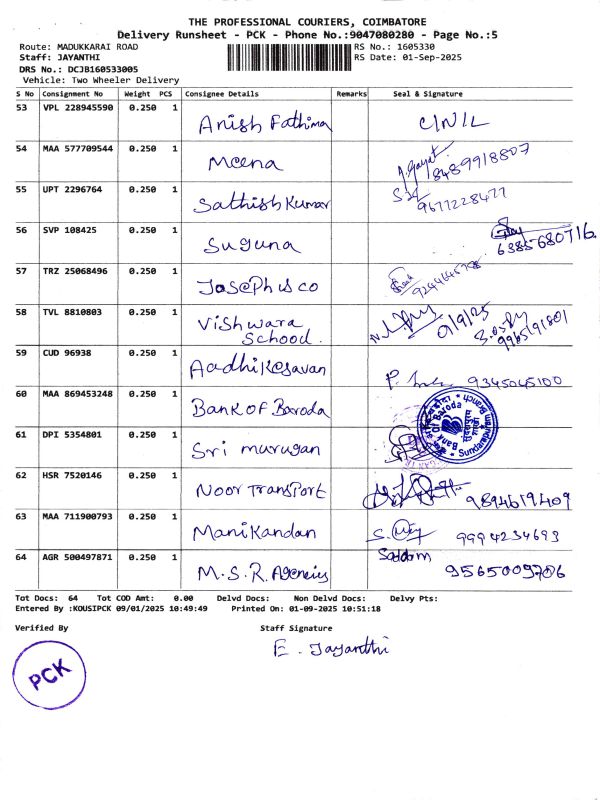 THE PROFESSIONAL COURIERS, COIMBATORE
Delivery Runsheet - PCK - Phone No.:9047080280 - Page No.:5
Route: MADUKKARAI ROAD RS No.: 1605330
Staff: JAYANTHI RS Date: 01-Sep-2025
DRS No.: DCJB160533005
Vehicle: Two Wheeler Delivery
S No Consignment No Weight PCS Consignee Details Remarks Seal & Signature
53 VPL 228945590 0.250 1 Anish Fathima CINIL
54 MAA 577709544 0.250 1 Meena 8489918807
55 UPT 2296764 0.250 1 Sathish Kumar 9677228477
56 SVP 108425 0.250 1 Suguna 6385680716
57 TRZ 25068496 0.250 1 Josephisco
58 TVL 8810803 0.250 1 Vishwara School. 01/9/25
59 CUD 96938 0.250 1 Aadhikesavan 9345045100
60 MAA 869453248 0.250 1 Bank OF Baroda Bank Of Baroda Sundarapuram
61 DPI 5354801 0.250 1 Sri murugan
62 HSR 7520146 0.250 1 Noor Transport 9894619409
63 MAA 711900793 0.250 1 Manikandan 9994234693
64 AGR 500497871 0.250 1 M.S.R. Agencies Saddam 9565009706
Tot Docs: 64 Tot COD Amt: 0.00 Delvd Docs: Non Delvd Docs: Delvy Pts:
Entered By :KOUSIPCK 09/01/2025 10:49:49 Printed On: 01-09-2025 10:51:18
Verified By Staff Signature
PCK E. Jayanthi